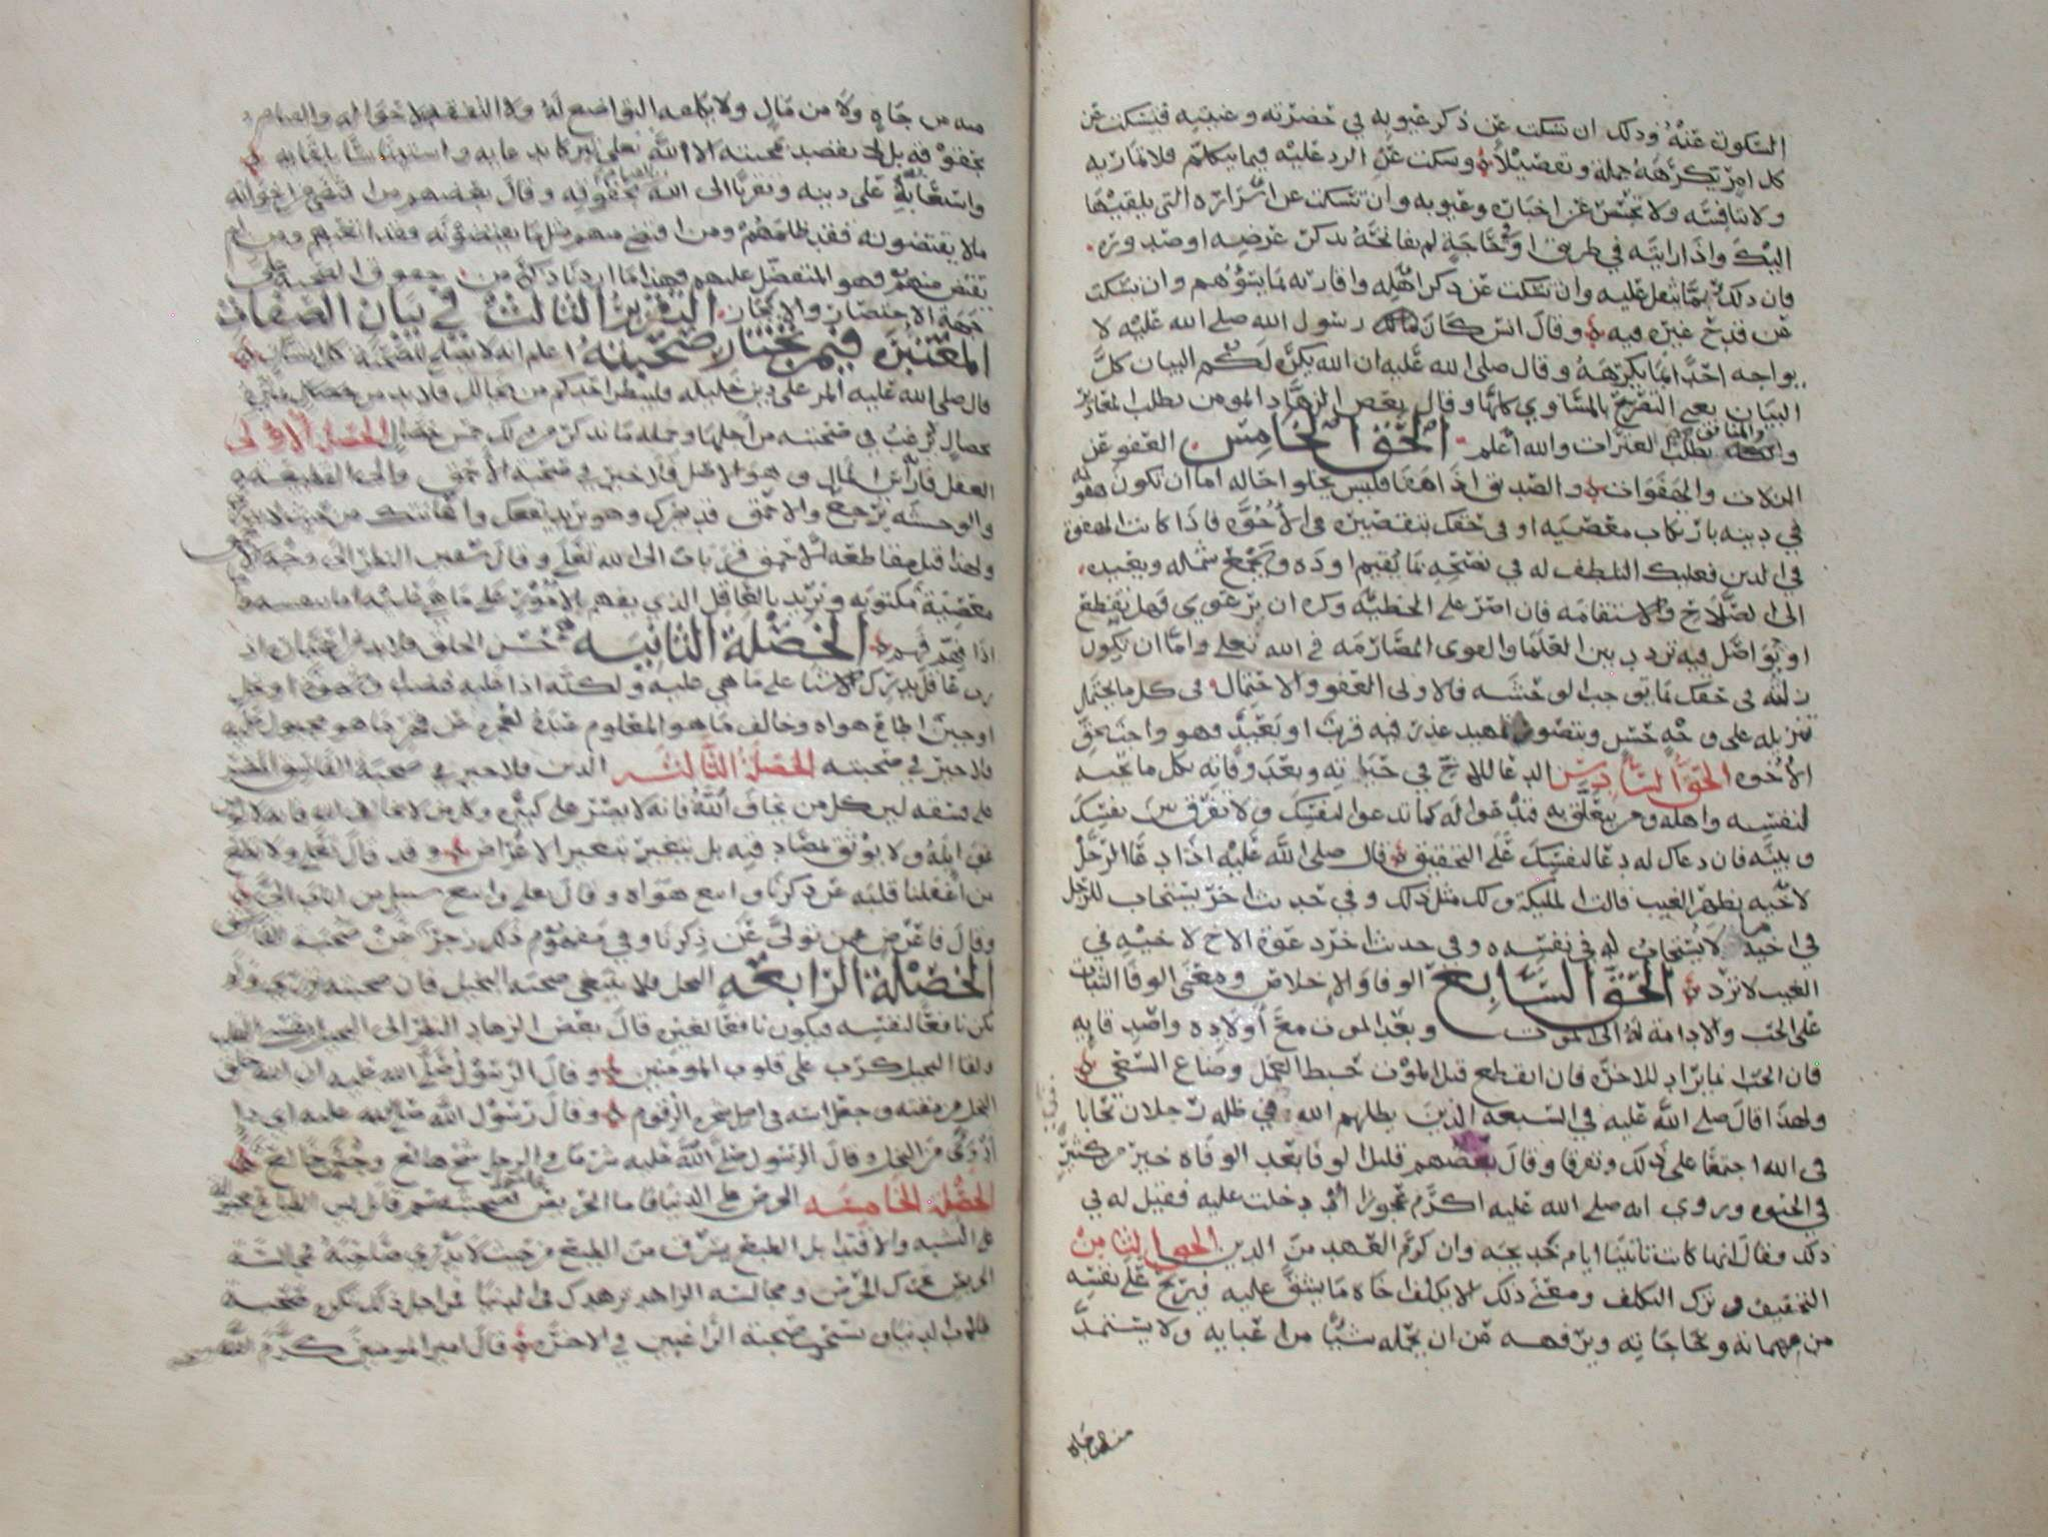 السكوت عنه وذلك ان تسكت عن ذكر عيوبه في حضرته وغيبته فتسكت عن
كل امر يكرهه جملة وتفصيلا وسكت عن الرد عليه فيما يتكلم فلا تماريه
ولا تناقشه ولا تجسس عن اخباره وعيوبه وان تسكت عن اسراره التي يلقيها
اليك واذا رايته في طريق او حاجة لم تفاتحه بذكر غرضه او صدوره
فان ذلك مما يثقل عليه وان تسكت عن ذكر اهله واقاربه بما يسؤهم وان تسكت
عن قدح غيره فيه وقال انس كان رسول الله صلى الله عليه لا
يواجه احدا بما يكرهه وقال صلى الله عليه ان الله يكره لكم البيان كل
البيان يعني التصريح بالمساوي كلها وقال بعض الزهاد المومن يطلب المعاذير
والمنافق يطلب العثرات والله اعلم الحق الخامس العفو عن
الزلات والهفوات والصديق اذا هفا فليس يخلوا حاله اما ان تكون هفوته
في دينه بارتكاب معصيه او في حقك بتقصيره في الأخوه فاذا كانت الهفوة
في الدين فعليك التلطف له في نصحه بما يقيم اوده ويجمع شمله ويعيده
الى الصلاح والاستقامه فان اصر على الخطيه وكره ان يرعوي فهل يقطع
او يواصل فيه تردد بين العلما والقوي المصارمه في الله تعالى واما ان يكون
زلته في حقك بما يوجب الوحشه فالاولى العفو والاحتمال في كل ما يحتمل
تنزيله على وجه حسن ويتصور تمهيد عذر فيه قرب او بعد فهو واجب بحق
الأخوه الحق السادس الدعا للاخ في حياته وبعد وفاته بكل ما يحبه
لنفسه واهله ومن يتعلق به فتدعوا له كما تدعوا لنفسك ولا تفرق بين نفسك
وبينه فان دعاك له دعا لنفسك على التحقيق قال صلى الله عليه اذا دعا الرجل
لاخيه بظهر الغيب قالت المليكة ولك مثل ذلك وفي حديث اخر يستجاب للرجل
في اخيه ما لا يستجاب له في نفسه وفي حديث اخر دعوة الاخ لاخيه في
الغيب لا ترد الحق السابع الوفا والاخلاص ومعنى الوفا الثبات
على الحب والادامة له الى الموت وبعد الموت مع أولاده واصدقايه
فان الحب انما يراد للاخره فان انقطع قبل الموت حبط العمل وضاع السعي
ولهذا قال صلى الله عليه في السبعه الذين يظلهم الله في ظله رجلان تحابا
في الله اجتمعا على ذلك وتفرقا وقال بعضهم قليل الوفا بعد الوفاه خير من كثيره
في الحيوه وروي انه صلى الله عليه اكرم عجوزا دخلت عليه فقيل له في
ذلك فقال انها كانت تاتينا ايام خديجه وان كرم العهد من الدين الحق الثامن
التخفيف وترك التكلف ومعنى ذلك لا يكلف اخاه ما يشق عليه فيريح على نفسه
من مهماته وحاجاته ويرفهه عن ان يحمله شيا من اعبايه ولا يستمد
منه من جاه
منه من جاه ولا من مال ولا يكلفه التواضع له ولا التفقد لاحواله والقيام
بحقوقه بل لا يقصد بمحبته الا الله تعالى تبركا بدعايه واستيناسا بلقايه
واستعانة على دينه وتقربا الى الله بحقوقه وقال بعضهم من اقتضى اخوانه
مالا يقتضونه فقد ظلمهم ومن اقتضى منهم مثل ما يقتضونه فقد اتعبهم ومن لم
يقتض منهم فهو المتفضل عليهم وهذا ما اردنا ذكره من حقوق الصحبه على
جهة الاختصار والايجاز التقرير الثالث في بيان الصفات
المعتبره فيمن تختار لصحبته اعلم انه لا يصلح للصحبة كل انسان
قال صلى الله عليه المر على دين خليله فلينظر احدكم من يخالل فلا بد من
خصال يرغب في صحبته من أجلها وجمله ما نذكر من ذلك خمس خصال الخصله الاولى
العقل فانه راس المال وهو الاصل فلا خير في صحبة الأحمق والى القطيعه
والوحشه يرجع والاحمق قد يضرك وهو يريد نفعك واعانتك من حيث لا يدري
ولهذا قيل مقاطعه الاحمق قربان الى الله تعالى وقال شعيب النظر الى وجه الاحمق
معصية مكتوبه ونريد بالعاقل الذي يفهم الامور على ما هي عليه اما بنفسه واما
اذا فهم فهم الخصلة الثانيه حسن الخلق فلا بد من اعتباره اذ
رب عاقل يدرك الاشيا على ما هي عليه ولكنه اذا غلبه غضب او شهوة او بخل
او جبن اطاع هواه وخالف ما هو المعلوم عنده لعجزه عن قهر ما هو مجبول عليه
فلا خير في صحبته الخصلة الثالثه الدين فلا خير في صحبة الفاسق المصر
على فسقه لان كل من يخاف الله فانه لا يصر على كبيره ومن لا يخاف الله فانه لا تومن
غوايله ولا يوثق بصداقته بل يتغير بتغير الاعراض وقد قال تعالى ولا تطع
من أغفلنا قلبه عن ذكرنا واتبع هواه وقال تعالى واتبع سبيل من اناب الي
وقال فاعرض عمن تولى عن ذكرنا وفي مفهوم ذلك زجر عن صحبة الفاسق
الخصلة الرابعه البخل فلا ينبغي صحبه البخيل فان صحبته
تكن نافعا لنفسه فيكون نافعا لغيره قال بعض الزهاد النظر الى البخيل يقسي القلب
ولقا البخيل كرب على قلوب المومنين وقال الرسول صلى الله عليه ان الله خلق
البخل من مقته وجعل اسه في اصل شجره الزقوم وقال رسول الله صلى الله عليه اي دا
أدوى من البخل وقال الرسول صلى الله عليه شر ما في الرجل شح هالع وجبن خالع
الخصلة الخامسه الحرص على الدنيا فاما الحريص فصحبته سم قاتل لان الطباع مجبوله
على التشبه والاقتدا بل الطبع يسرق من الطبع من حيث لا يدري صاحبه فمجالسة
الحريص تحرك الحرص ومجالسة الزاهد تزهدك في الدنيا فمن اجل ذلك تكره صحبة
طلاب الدنيا وتستحب صحبة الراغبين في الاخره قال امير المومنين كرم الله